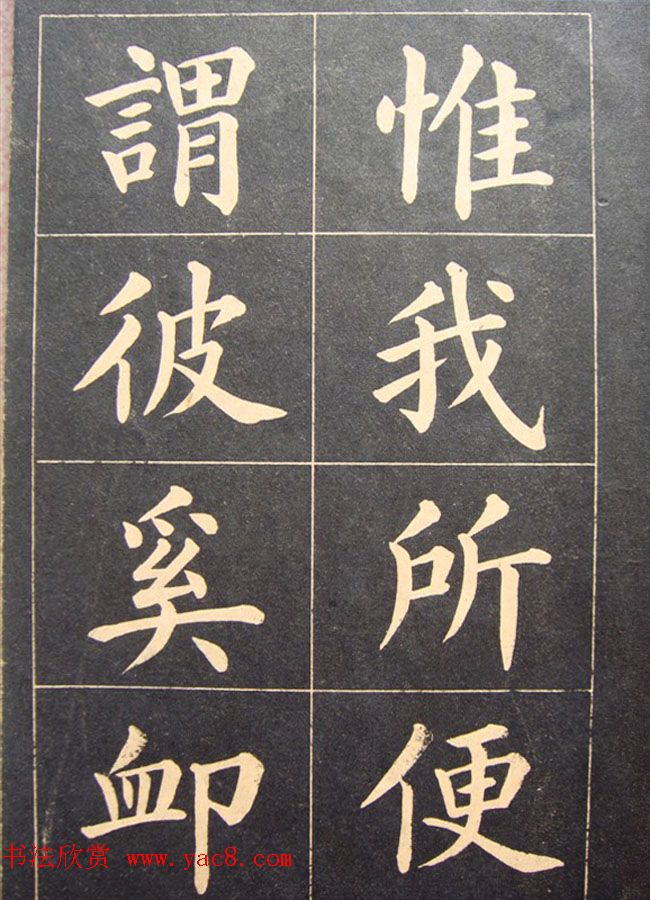 惟我所便
謂彼奚卹
书法欣赏 www.yac8.com